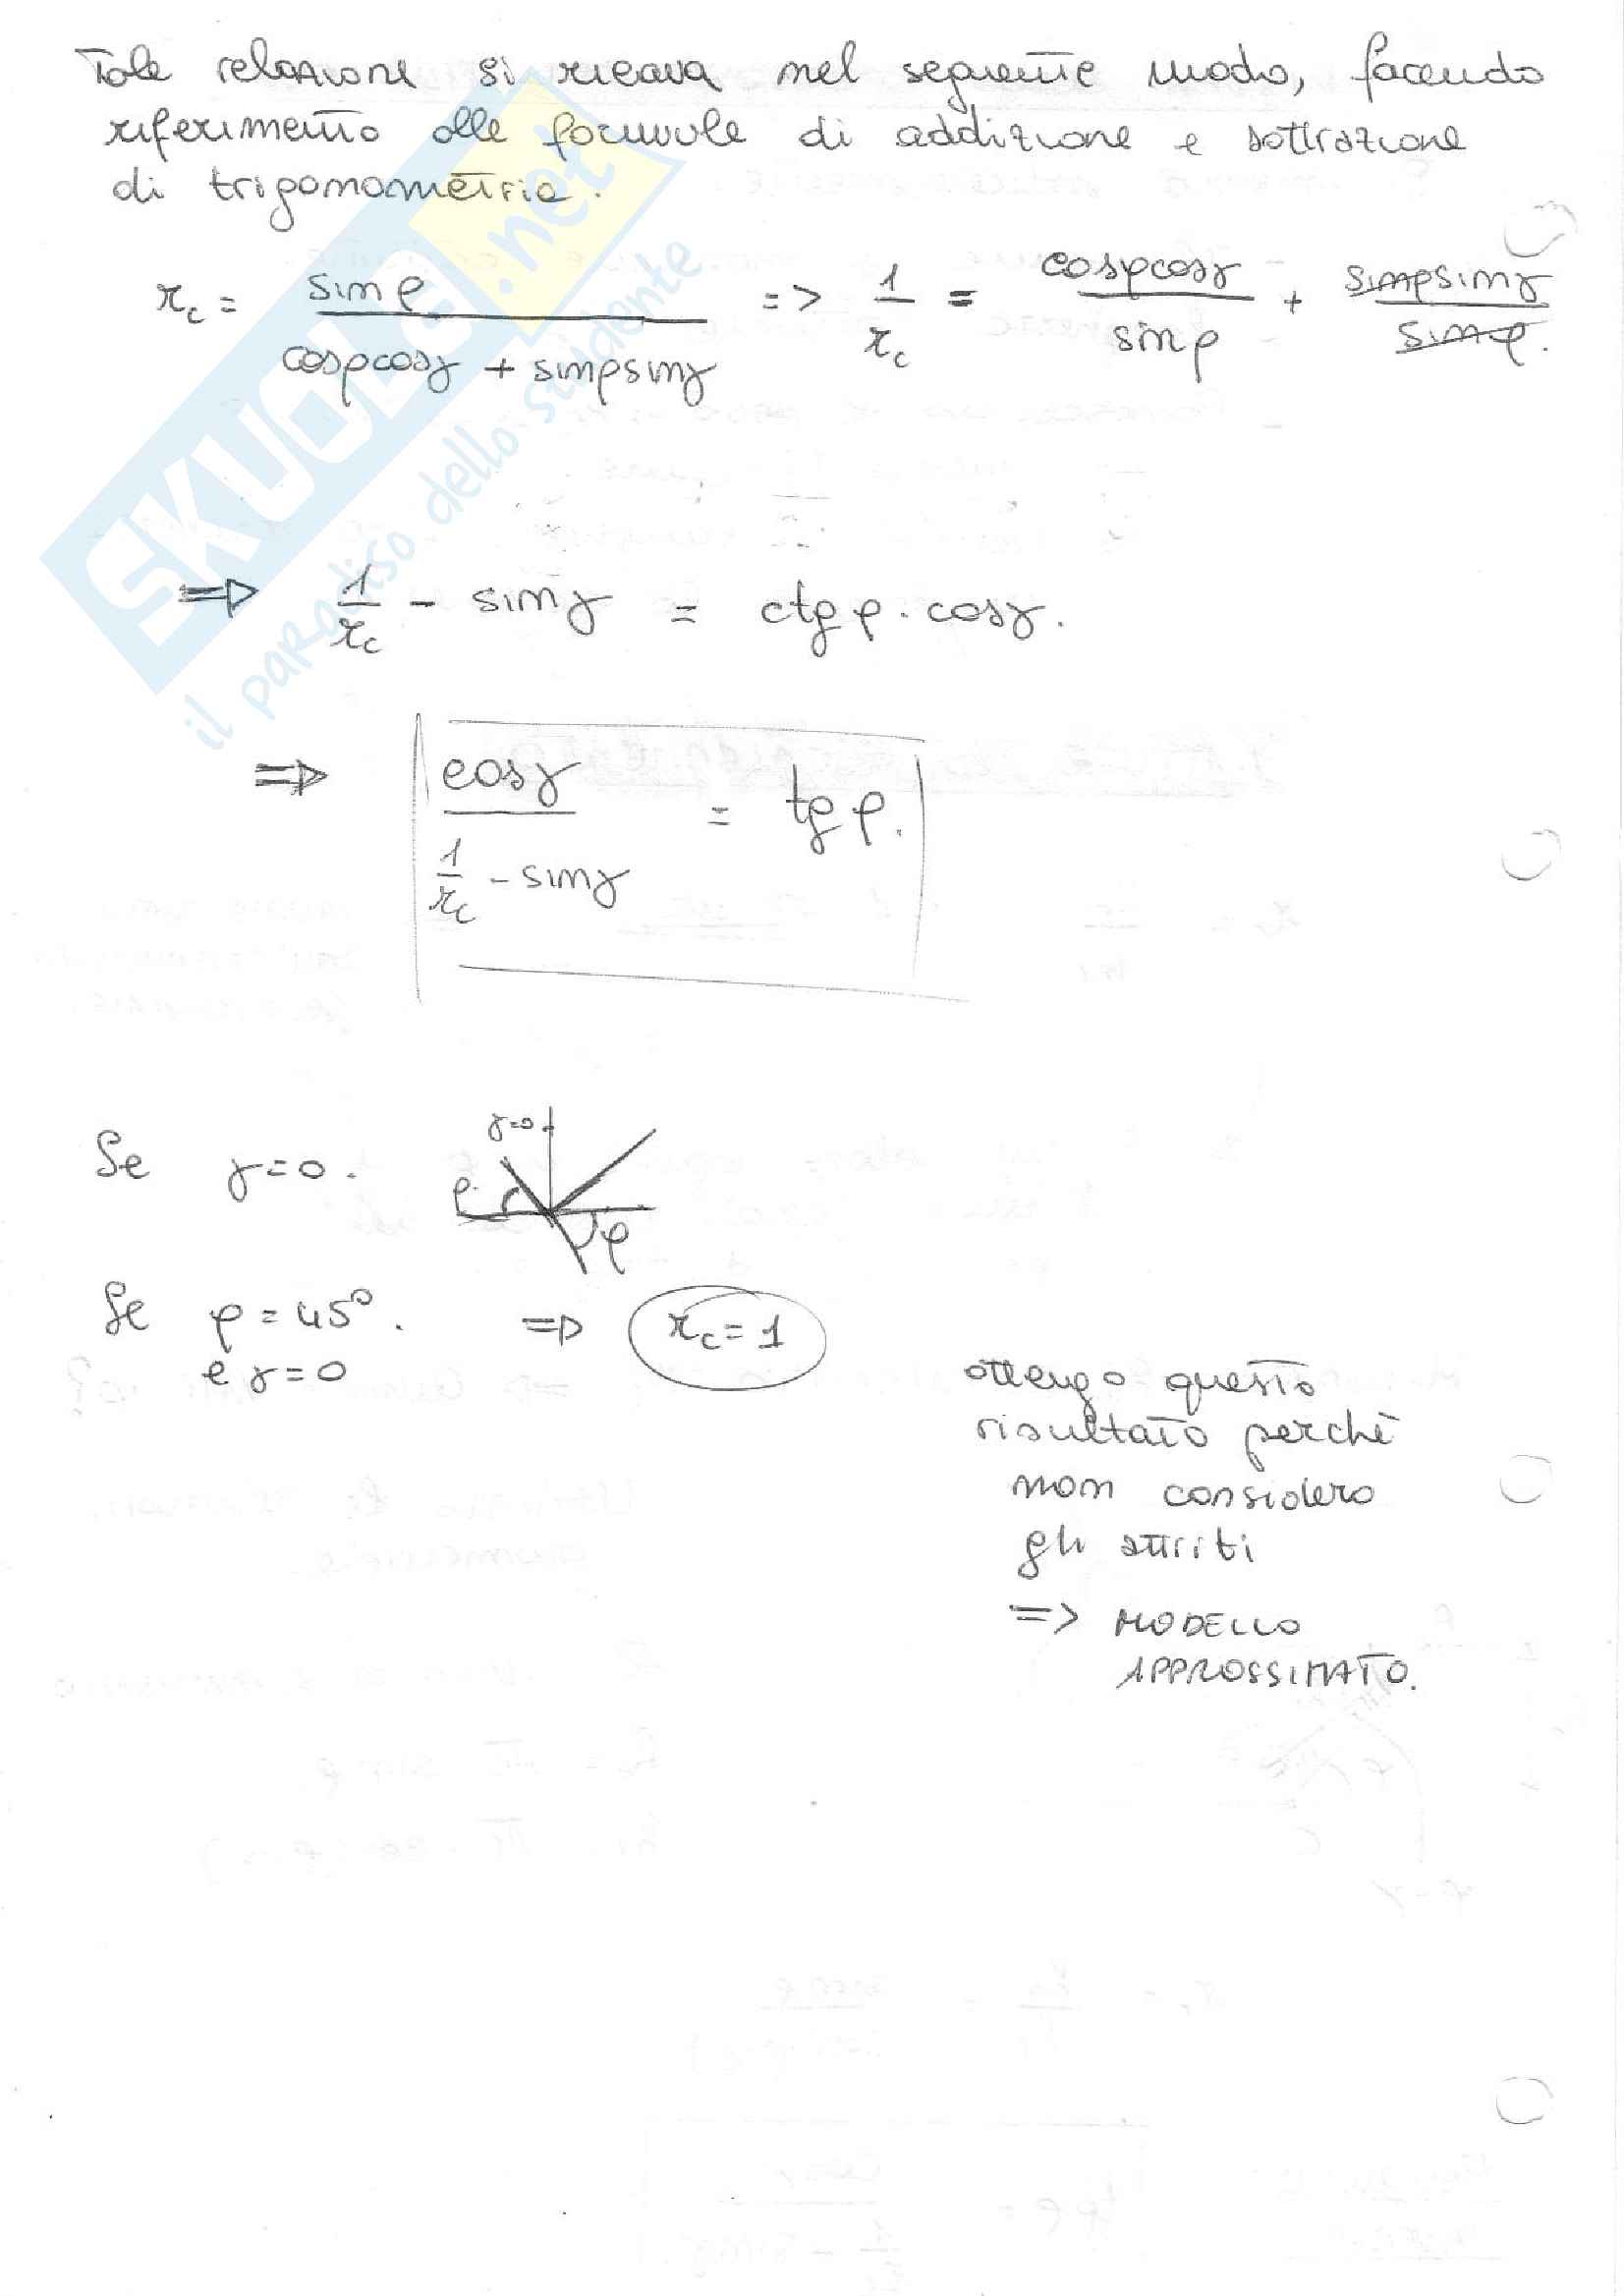 Tale relazione si ricava nel seguente modo, facendo
riferimento alle formule di addizione e sottrazione
di trigonometria.
r_c = sin φ / (cosφcosγ + sinφsinγ) => 1/r_c = cosφcosγ / sinφ + sinφsinγ / sinφ.
=> 1/r_c - sinγ = ctg φ · cosγ.
=> cosγ / (1/r_c - sinγ) = tg φ.
Se γ=0.
γ=0
φ
φ
Se φ=45°. => r_c=1
e γ=0
ottengo questo
risultato perchè
non considero
gli attriti
=> MODELLO
APPROSSIMATO.
SKUOLA.net
il paradiso dello studente